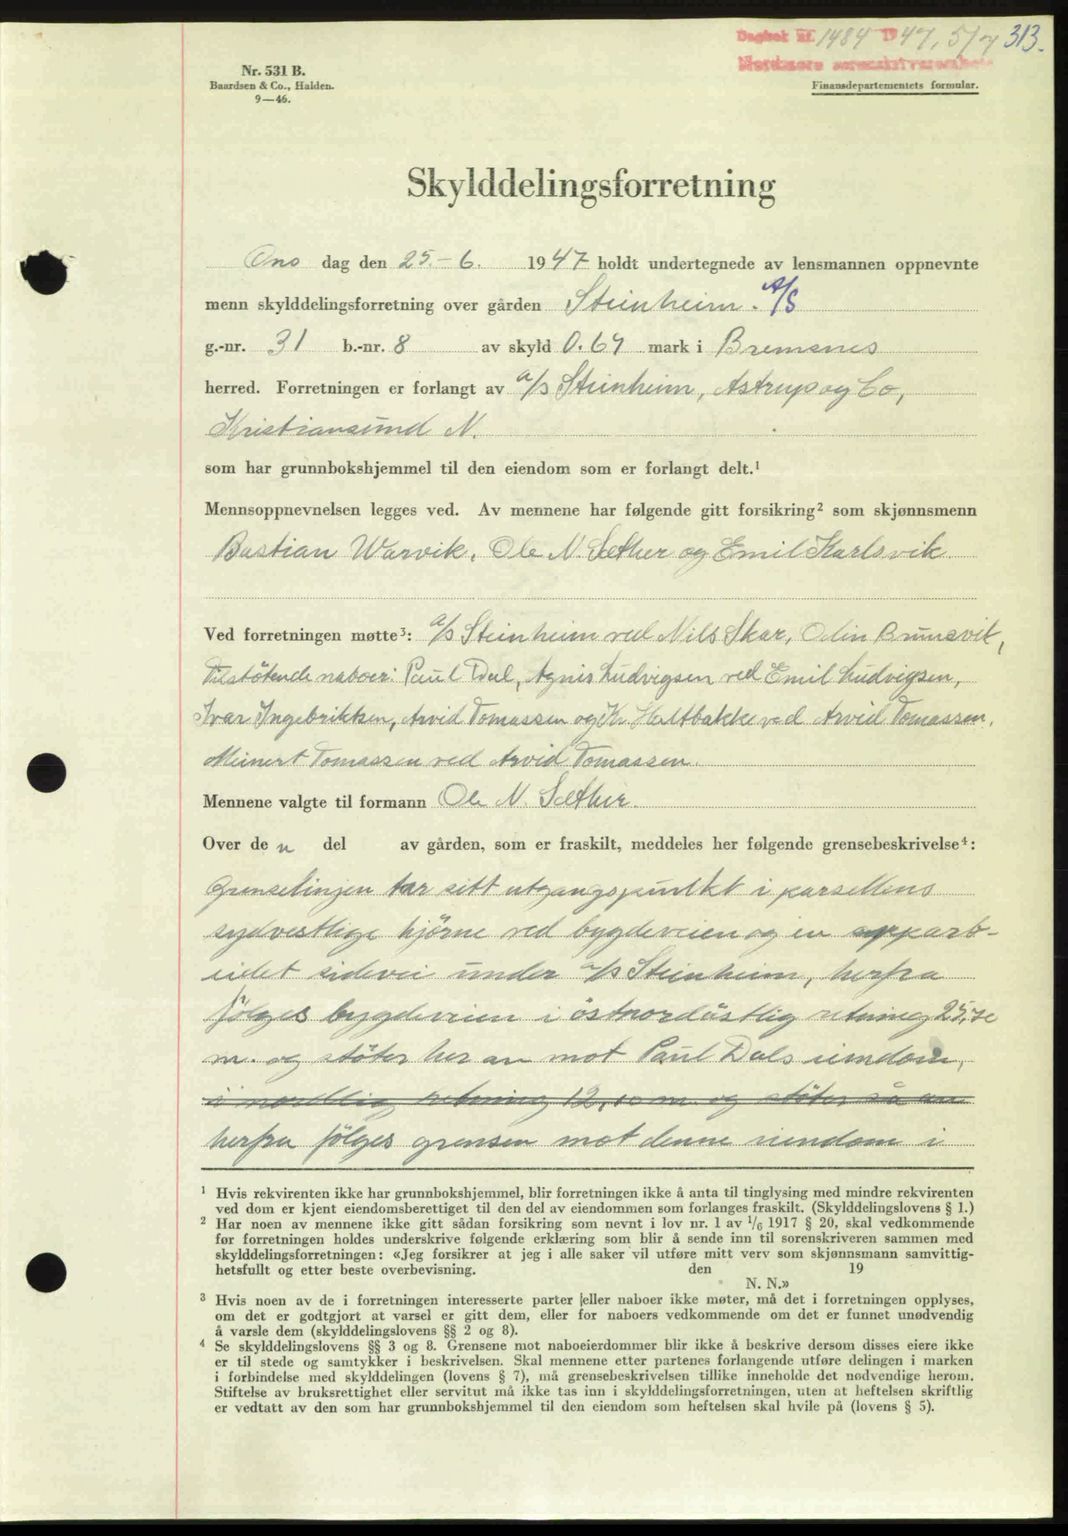 Dagbok nr. 1484 1947, 5/7 313.
Nordmøre sorenskriverembete
Nr. 531 B.
Baardsen & Co., Halden.
9—46.
Finansdepartementets formular.
Skylddelingsforretning
Ons dag den 25.-6. 1947 holdt undertegnede av lensmannen oppnevnte
menn skylddelingsforretning over gården Steinheim. A/S
g.-nr. 31 b.-nr. 8 av skyld 0.67 mark i Bremsnes
herred. Forretningen er forlangt av a/s Steinheim, Astrup og Co,
Kristiansund N.
som har grunnbokshjemmel til den eiendom som er forlangt delt.¹
Mennsoppnevnelsen legges ved. Av mennene har følgende gitt forsikring² som skjønnsmenn
Bastian Warvik, Ole N. Sæther og Emil Karlsvik
Ved forretningen møtte³: a/s Steinheim ved Nils Skar, Odin Brunsvik,
Tilstötende naboer: Paul Dal, Agnis Ludvigsen ved Emil Ludvigsen,
Ivar Ingebriktsen, Arvid Tomassen og Kr. Holtbakke ved Arvid Tomassen,
Meinert Tomassen ved Arvid Tomassen.
Mennene valgte til formann Ole N. Sæther.
Over den del av gården, som er fraskilt, meddeles her følgende grensebeskrivelse⁴:
Grenselinjen tar sitt utgangspunkt i parsellens
sydvestlige hjörne ved bygdeveien og en opparb-
eidet sidevei under a/s Steinheim, herfra
fölges bygdeveien i östnordöstlig retning 25,70
m. og stöter her an mot Paul Dals eiendom,
i nordlig retning 12,10 m. og stöter så an
herfra fölges grensen mot denne eiendom i
¹ Hvis rekvirenten ikke har grunnbokshjemmel, blir forretningen ikke å anta til tinglysing med mindre rekvirenten
ved dom er kjent eiendomsberettiget til den del av eiendommen som forlanges fraskilt. (Skylddelingslovens § 1.)
² Har noen av mennene ikke gitt sådan forsikring som nevnt i lov nr. 1 av 1/6 1917 § 20, skal vedkommende
før forretningen holdes underskrive følgende erklæring som blir å sende inn til sorenskriveren sammen med
skylddelingsforretningen: «Jeg forsikrer at jeg i alle saker vil utføre mitt verv som skjønnsmann samvittig-
hetsfullt og etter beste overbevisning. den 19
N. N.»
³ Hvis noen av de i forretningen interesserte parter eller naboer ikke møter, må det i forretningen opplyses,
om det er godtgjort at varsel er gitt dem, eller for naboers vedkommende om det er funnet unødvendig
å varsle dem (skylddelingslovens §§ 2 og 8).
⁴ Se skylddelingslovens §§ 3 og 8. Grensene mot naboeierdommer blir ikke å beskrive dersom disses eiere ikke
er til stede og samtykker i beskrivelsen. Skal mennene etter partenes forlangende utføre delingen i marken
i forbindelse med skylddelingen (lovens § 7), må grensebeskrivelsen tillike inneholde det nødvendige herom.
Stiftelse av bruksrettighet eller servitut må ikke tas inn i skylddelingsforretningen, uten at heftelsen skriftlig
er vedtatt av den som har grunnbokshjemmel til den eiendom som heftelsen skal hvile på (lovens § 5).